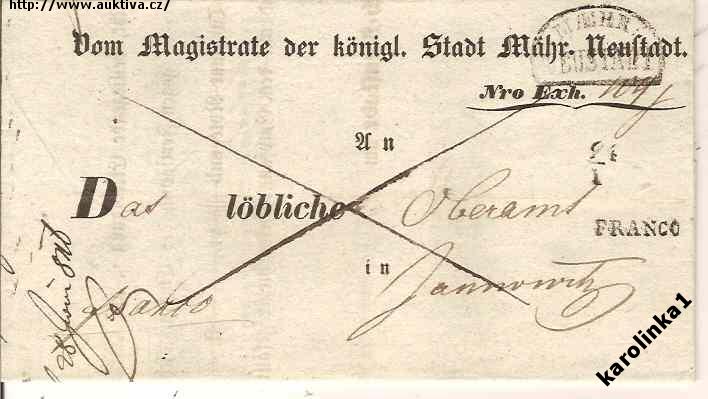 http://www.auktiva.cz/
MÄHR
NEUSTADT
Vom Magistrate der königl. Stadt Mähr. Neustadt.
Nro Exh.
An
21
I
Das löbliche Oberamt
FRANCO
in Jannowitz
franco
karolinka1